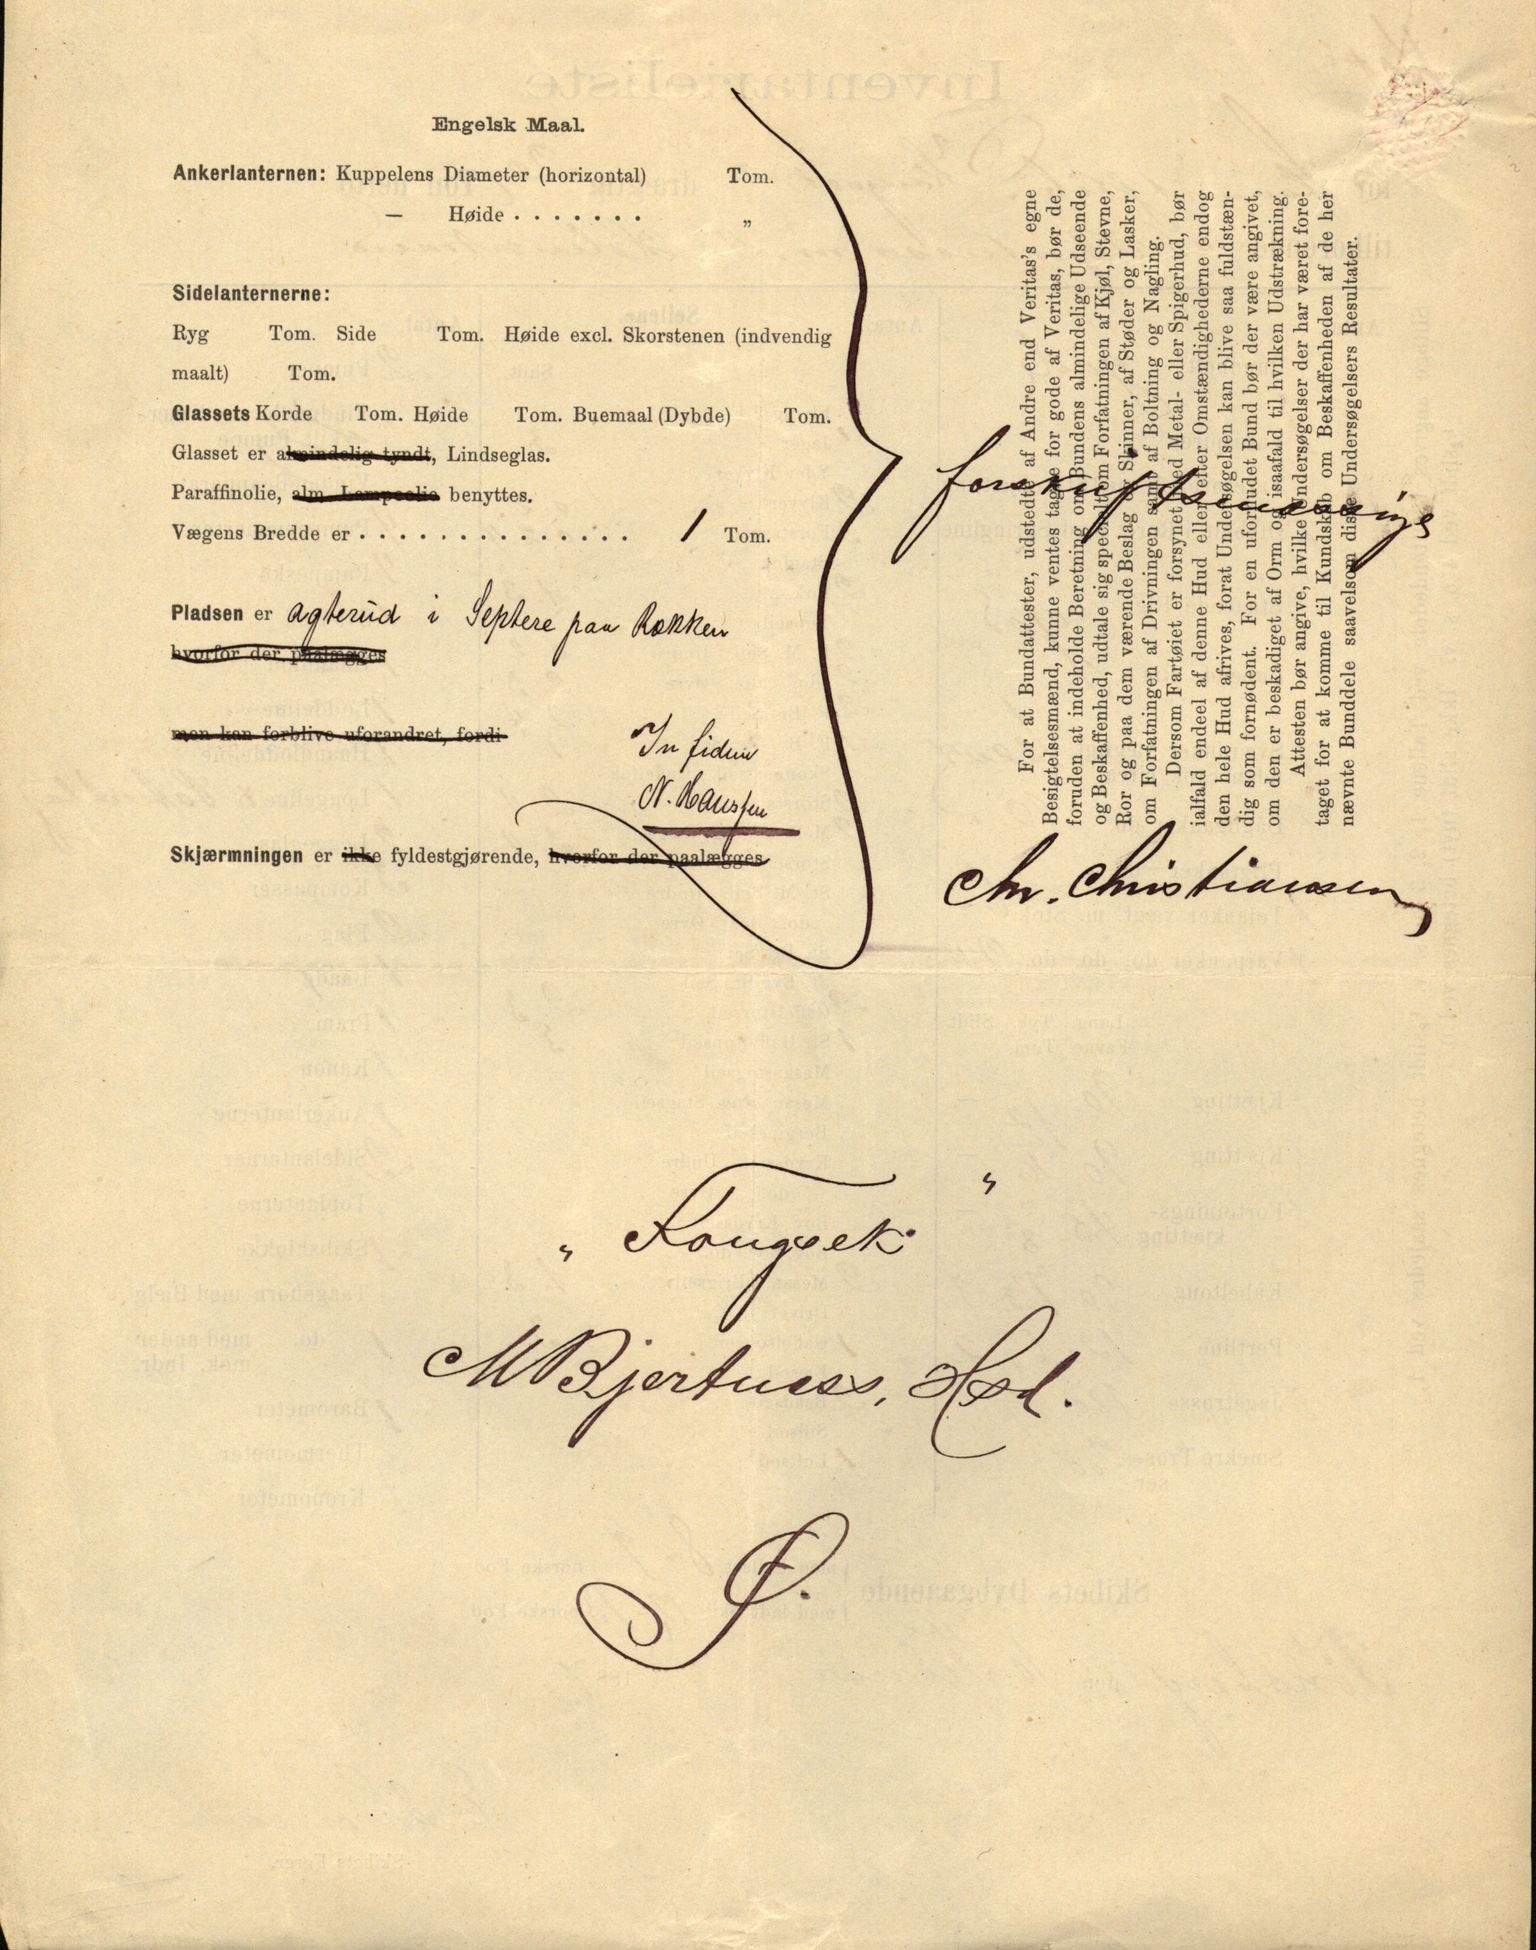 Engelsk Maal.
Ankerlanternen: Kuppelens Diameter (horizontal) Tom.
— Høide . . . . . . . „
Sidelanternerne:
Ryg Tom. Side Tom. Høide excl. Skorstenen (indvendig
maalt) Tom.
Glassets Korde Tom. Høide Tom. Buemaal (Dybde) Tom.
Glasset er almindelig tyndt, Lindseglas.
Paraffinolie, alm. Lampeolie benyttes.
Vægens Bredde er . . . . . . . . . . . . . . . 1 Tom.
Pladsen er agterud i Septere paa Rækken
hvorfor der paalægges
men kan forblive uforandret, fordi
In fidem
N. Hansen
Skjærmningen er ikke fyldestgjørende, hvorfor der paalægges
forskriftsmæssige
For at Bundattester, udstedte af Andre end Veritas's egne
Besigtelsesmænd, kunne ventes tagne for gode af Veritas, bør de,
foruden at indeholde Beretning om Bundens almindelige Udseende
og Beskaffenhed, udtale sig specielt om Forfatningen af Kjøl, Stevne,
Ror og paa dem værende Beslag og Skinner, af Støder og Lasker,
om Forfatningen af Drivningen samt af Boltning og Nagling.
Dersom Fartøiet er forsynet med Metal- eller Spigerhud, bør
ialfald endeel af denne Hud eller efter Omstændighederne endog
den hele Hud afrives, forat Undersøgelsen kan blive saa fuldstæn-
dig som fornødent. For en uforhudet Bund bør der være angivet,
om den er beskadiget af Orm og isaafald til hvilken Udstrækning.
Attesten bør angive, hvilke Undersøgelser der har været fore-
taget for at komme til Kundskab om Beskaffenheden af de her
nævnte Bunddele saavelsom disse Undersøgelsers Resultater.
Chr. Christiansen
„ Fougsek "
M Bjertnæs, Hsd.